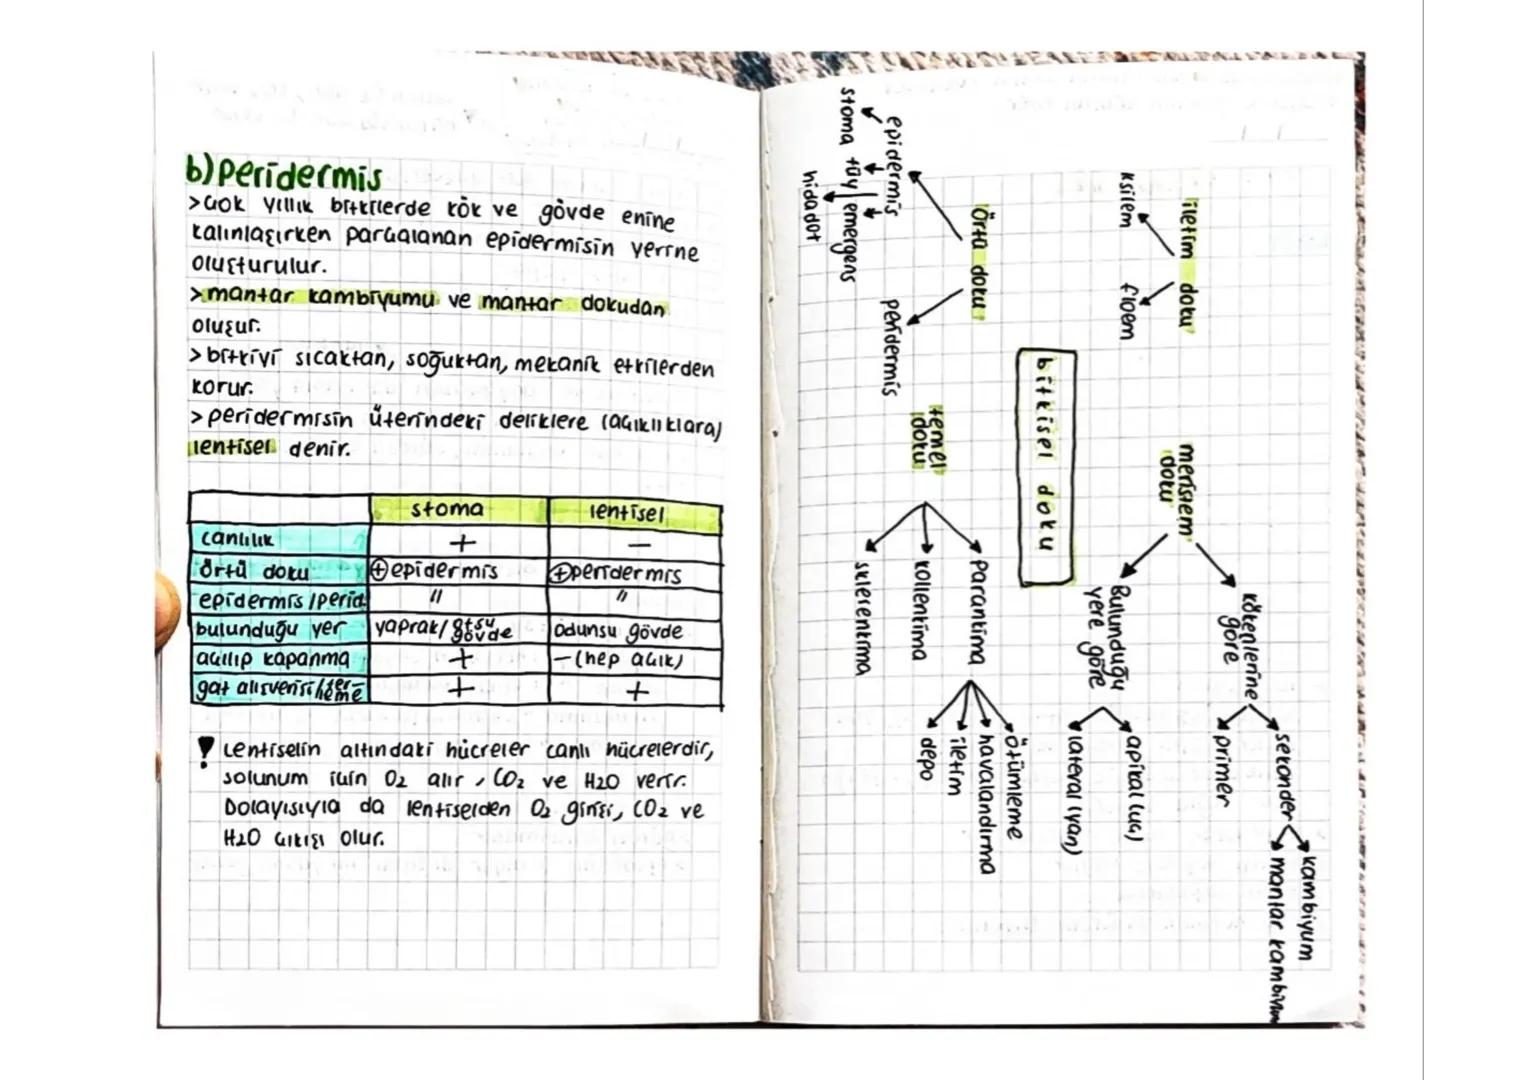 b) Peridermis
>Çok yıllık bitkilerde kök ve gövde enine
kalınlaşırken parçalanan epidermisin yerine
oluşturulur.
>mantar kambiyumu ve mantar dokudan
oluşur.
>bitkiyi sıcaktan, soğuktan, mekanik etkilerden
korur.
>peridermisin üzerindeki deliklere (açıklıklara)
lentisel denir.
stoma lentisel
canlılık + −
örtü doku ⊕epidermis ⊕peridermis
epidermis/perid. " "
bulunduğu yer yaprak/otsu gövde odunsu gövde
açılıp kapanma + −(hep açık)
gaz alışverişi/terleme + +
! Lentiselin altındaki hücreler canlı hücrelerdir,
solunum için O2 alır, CO2 ve H2O verir.
Dolayısıyla da lentiselden O2 girişi, CO2 ve
H2O çıkışı olur.
bitkisel doku
iletim doku
ksilem
floem
merisitem doku
kökenlerine göre
sekonder
kambiyum
mantar kambiyum
primer
Bulunduğu yere göre
apikal (uç)
lateral (yan)
Örtü doku
epidermis
stoma
tüy
emergens
hidadot
peridermis
temel doku
parantima
özümleme
havalandırma
iletim
depo
kollentima
sklerentima